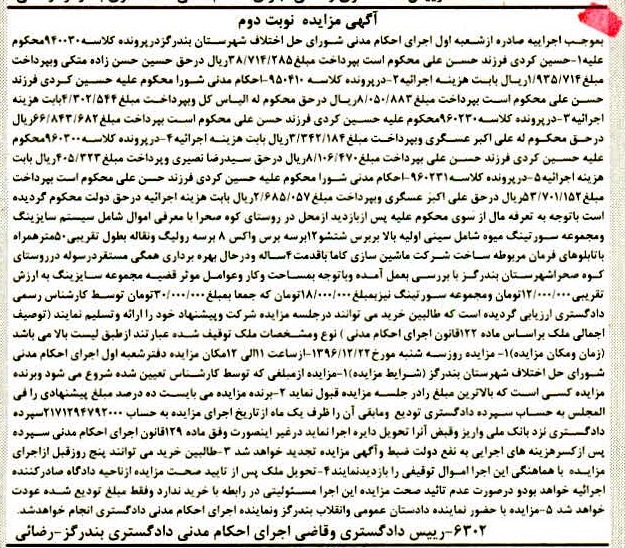 آگهی مزایده نوبت دوم
بموجب اجراییه صادره ازشعبه اول اجرای احکام مدنی شورای حل اختلاف شهرستان بندرگزدرپرونده کلاسه ۹۴۰۰۳۰محکوم
علیه۱-حسین کردی فرزند حسن علی محکوم است بپرداخت مبلغ۳۸/۷۱۴/۲۸۵ریال درحق حسین حسن زاده متکی وبپرداخت
مبلغ۱/۹۳۵/۷۱۴ریال بابت هزینه اجرائیه۲-درپرونده کلاسه ۹۵۰۴۱۰-احکام مدنی شورا محکوم علیه حسین کردی فرزند
حسن علی محکوم است بپرداخت مبلغ ۸/۰۵۰/۸۸۳ریال درحق محکوم له الیاس کل وبپرداخت مبلغ۴/۳۰۲/۵۴۴بابت هزینه
اجرائیه۳-درپرونده کلاسه۹۶۰۲۳۰محکوم علیه حسین کردی فرزند حسن علی محکوم است بپرداخت مبلغ ۶۶/۸۴۳/۶۸۲ریال
درحق محکوم له علی اکبر عسگری وبپرداخت مبلغ۳/۳۴۲/۱۸۴ریال بابت هزینه اجرائیه۴-درپرونده کلاسه۹۶۰۳۰۰محکوم
علیه حسین کردی فرزند حسن علی محکوم است بپرداخت مبلغ۸/۱۰۶/۴۷۰ریال درحق سیدرضا نصیری وپرداخت مبلغ۴۰۵/۳۲۳ریال بابت
هزینه اجرائیه۵-درپرونده کلاسه۹۶۰۲۳۱-احکام مدنی شورا محکوم علیه حسین کردی فرزند حسن علی محکوم است بپرداخت
مبلغ۵۳/۷۰۱/۱۵۲ریال درحق علی اکبر عسگری وبپرداخت مبلغ۲/۶۸۵/۰۵۷ریال بابت هزینه اجرائیه درحق دولت محکوم گردیده
است باتوجه به تعرفه مال از سوی محکوم علیه پس ازبازدید ازمحل در روستای کوه صحرا با معرفی اموال شامل سیستم سایزینگ
ومجموعه سورتینگ میوه شامل سینی اولیه بالا بربرش شتشو۱۲برسه برس واکس ۸ برسه رولیگ ونقاله بطول تقریبی۵۰مترهمراه
باتابلوهای فرمان مربوطه ساخت شرکت ماشین سازی کاما باقدمت۴ساله ودرحال بهره برداری همگی مستقردرسوله درروستای
کوه صحراشهرستان بندرگز با بررسی بعمل آمده وباتوجه بمساحت وکار وعوامل موثر قضیه مجموعه سایزینگ به ارزش
تقریبی۱۲/۰۰۰/۰۰۰تومان ومجموعه سورتینگ نیزبمبلغ۱۸/۰۰۰/۰۰۰تومان که جمعا بمبلغ۳۰/۰۰۰/۰۰۰تومان توسط کارشناس رسمی
دادگستری ارزیابی گردیده است که طالبین خرید می توانند درجلسه مزایده شرکت وپیشنهاد خود را ارائه وتسلیم نمایند (توصیف
اجمالی ملک براساس ماده ۱۲۲قانون اجرای احکام مدنی ) نوع ومشخصات ملک توقیف شده عبارتند ازطبق لیست بالا می باشد
(زمان ومکان مزایده)۱- مزایده روزسه شنبه مورخ۱۳۹۶/۱۲/۲۲-ازساعت ۱۱الی ۱۲مکان مزایده دفترشعبه اول اجرای احکام مدنی
شورای حل اختلاف شهرستان بندرگز (شرایط مزایده)۱-مزایده ازمبلغی که توسط کارشناس تعیین شده شروع می شود وبرنده
مزایده کسی است که بالاترین مبلغ رادر جلسه مزایده قبول نماید ۲-برنده مزایده می بایست ده درصد مبلغ پیشنهادی را فی
المجلس به حساب سپرده دادگستری تودیع ومابقی آن را ظرف یک ماه از تاریخ اجرای مزایده به حساب ۲۱۷۱۲۹۴۷۹۲۰۰۰سپرده
دادگستری نزد بانک ملی واریز وقبض آنرا تحویل دایره اجرا نماید درغیر اینصورت وفق ماده ۱۲۹قانون اجرای احکام مدنی سپرده
پس ازکسرهزینه های اجرایی به نفع دولت ضبط وآگهی مزایده تجدید خواهد شد ۳-طالبین خرید می توانند پنج روزقبل ازاجرای
مزایده با هماهنگی این اجرا اموال توقیفی را بازدیدنمایند۴-تحویل ملک پس از تایید صحت مزایده ازناحیه دادگاه صادرکننده
اجرائیه خواهد بودو درصورت عدم تائید صحت مزایده این اجرا مسئولیتی در رابطه با خرید ندارد وفقط مبلغ تودیع شده عودت
خواهد شد ۵-مزایده با حضور نماینده دادستان عمومی وانقلاب بندرگز ونماینده اجرای احکام مدنی دادگستری انجام خواهدشد.
۶۳۰۲-رییس دادگستری وقاضی اجرای احکام مدنی دادگستری بندرگز-رضائی